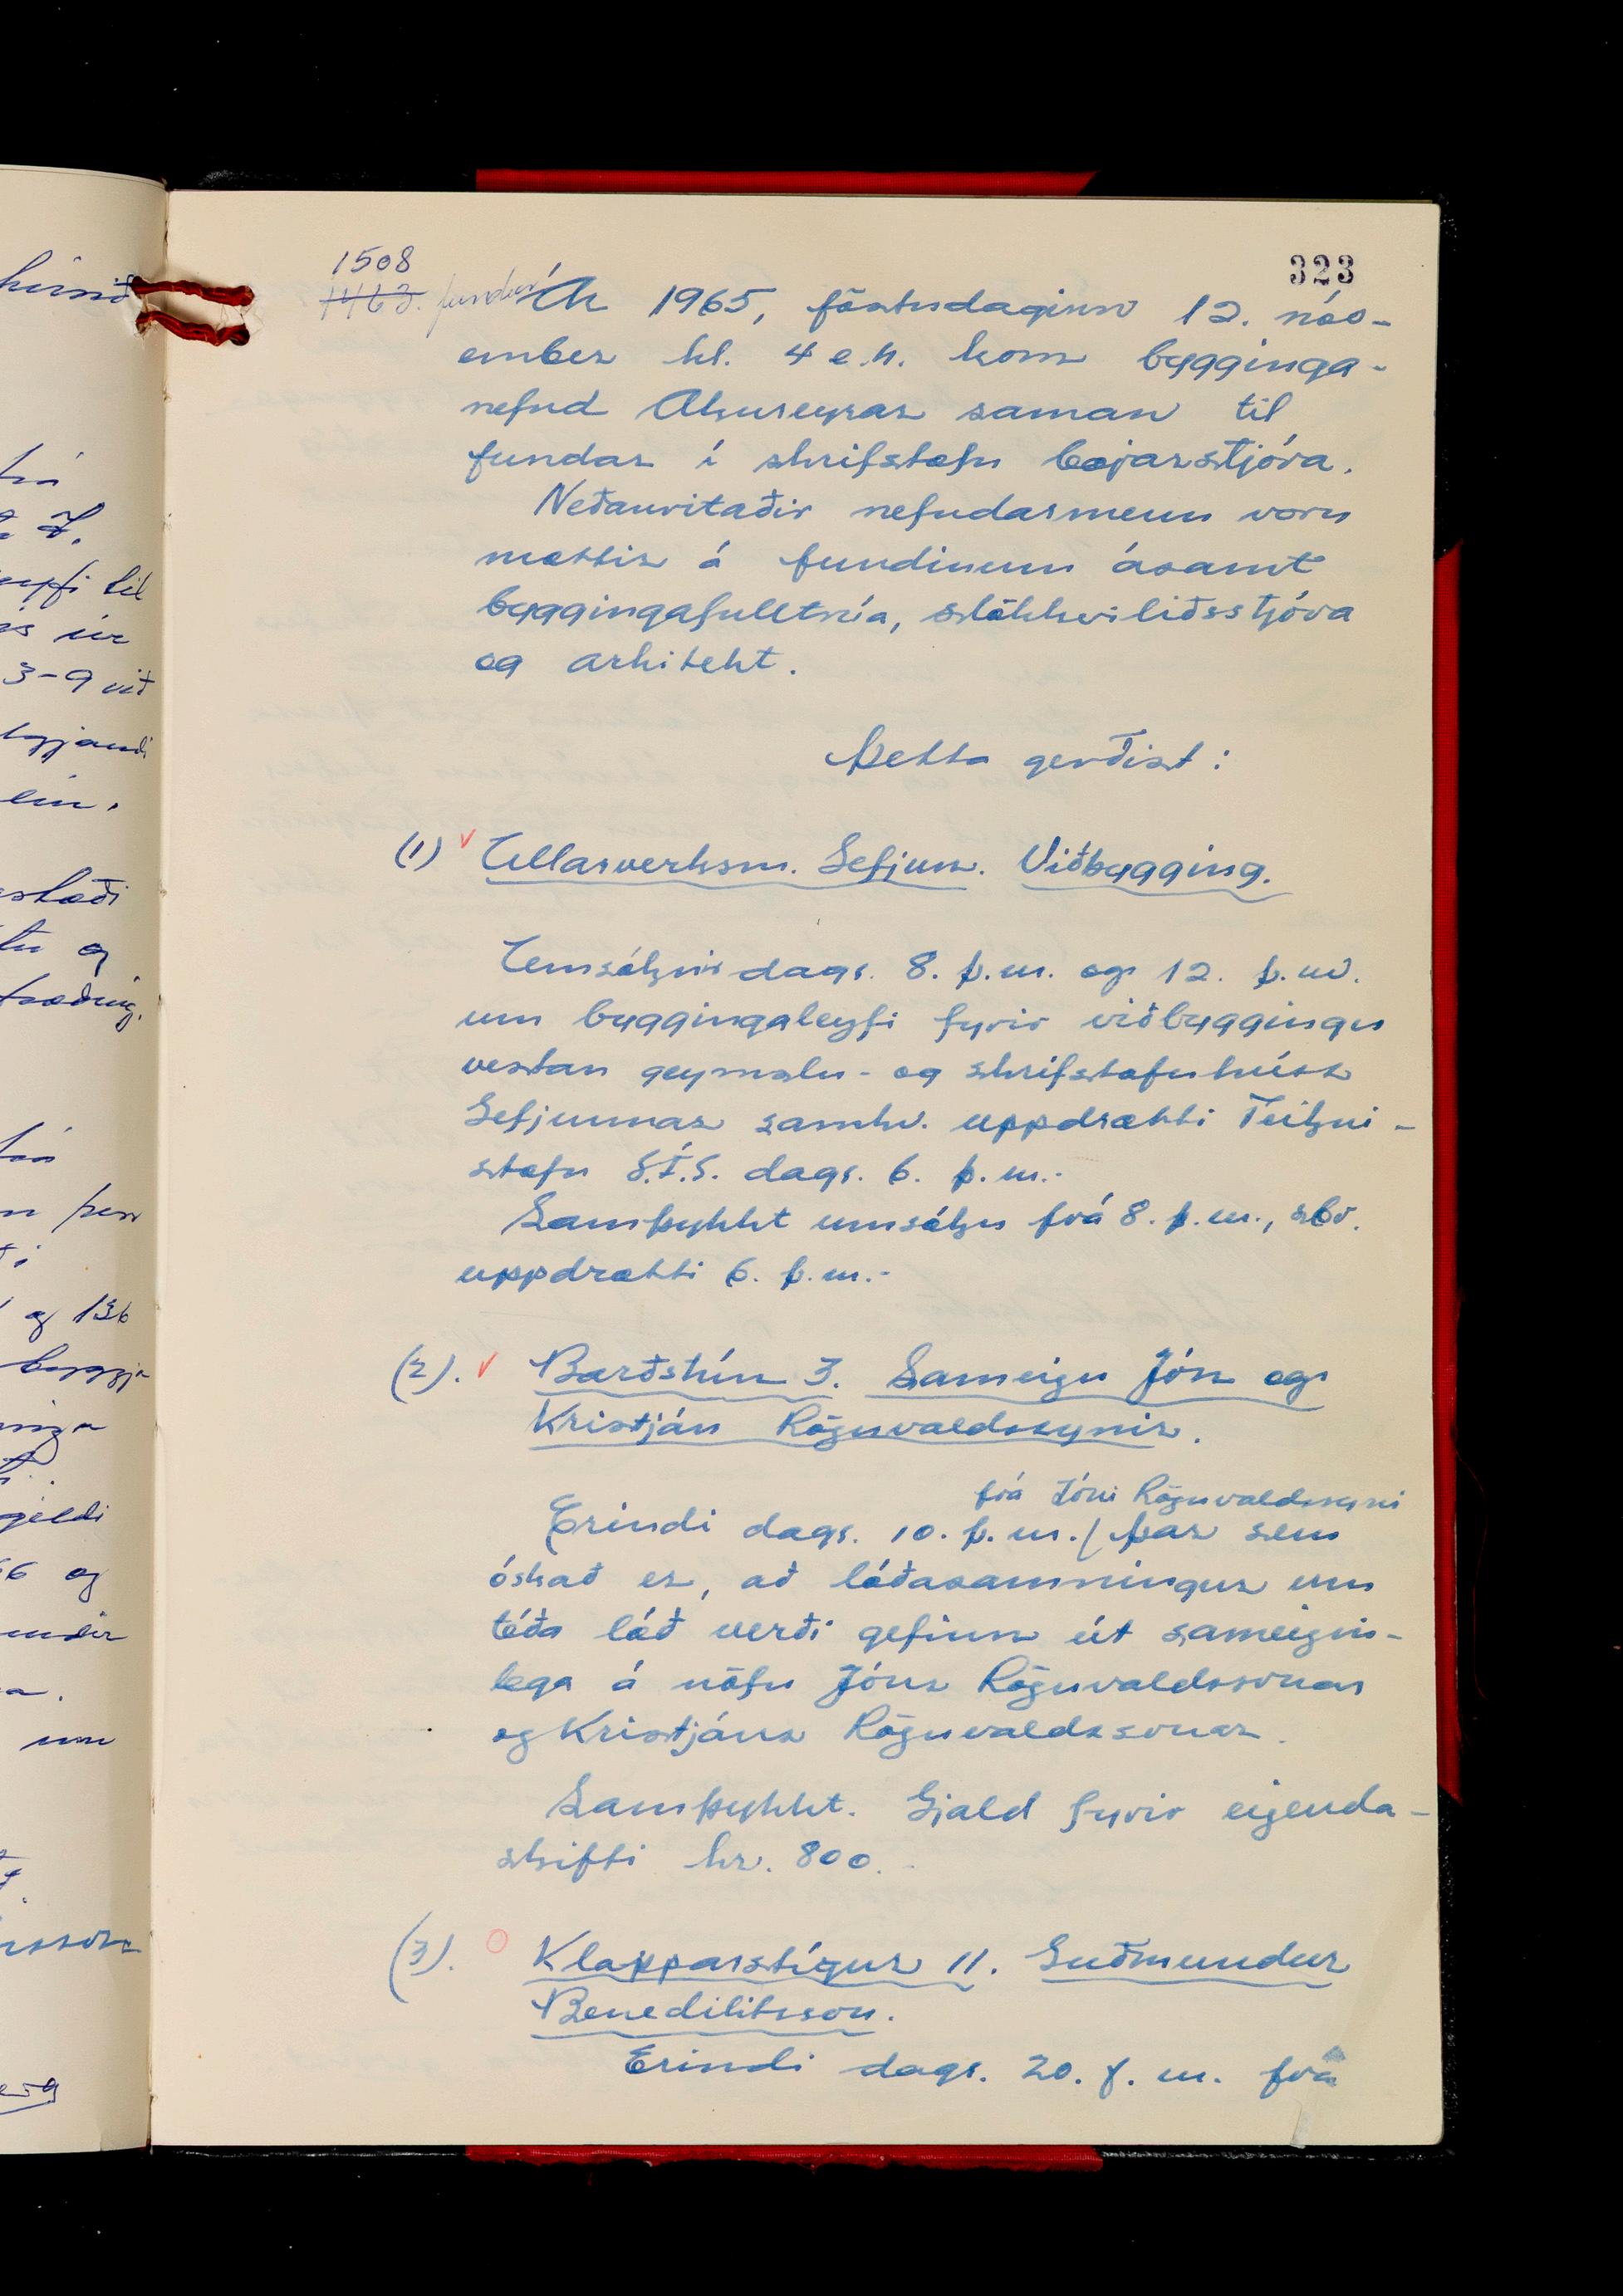 323
1508
1463. fundur
Ár 1965, föstudaginn 12. nóv-
ember kl. 4 e.h. kom bygginga-
nefnd Akureyrar saman til
fundar í skrifstofu bæjarstjóra.
Neðanritaðir nefndarmenn voru
mættir á fundinum ásamt
byggingafulltrúa, slökkviliðsstjóra
og arkitekt.
Þetta gerðist:
(1) Ullarverksm. Gefjun. Viðbygging.
Umsóknir dags. 8. þ.m. og 12. þ.m.
um byggingaleyfi fyrir viðbyggingu
vestan geymslu- og skrifstofuhúss
Gefjunnar samkv. uppdrætti Teikni-
stofu S.Í.S. dags. 6. þ.m.-
Samþykkt umsókn frá 8. þ.m., sbr.
uppdrætti 6. þ.m.-
(2). Barðstún 3. Sameign Jón og
Kristján Rögnvaldssynir.
frá Jóni Rögnvaldssyni
Erindi dags. 10. þ.m./ þar sem
óskað er, að lóðasamningur um
téða lóð verði gefinn út sameigin-
lega á nöfn Jóns Rögnvaldssonar
og Kristjáns Rögnvaldssonar.
Samþykkt. Gjald fyrir eigenda-
skipti kr. 800.-
(3). Klapparstígur 11. Guðmundur
Benediktsson.
Erindi dags. 20. f.m. frá